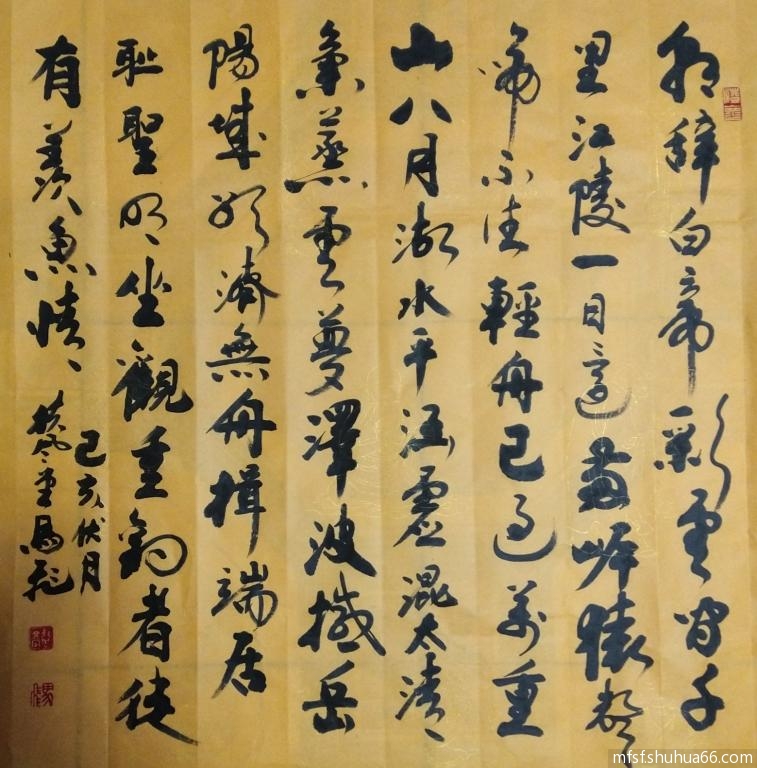 朝辞白帝彩雲間千
里江陵一日還兩岸猿聲
啼不住輕舟已過萬重
山八月湖水平涵虛混太清
氣蒸雲夢澤波撼岳
陽城欲濟無舟楫端居
耻聖明坐觀垂釣者徒
有羨魚情
己亥伏月
堂馬
mfsf.shuhua66.com